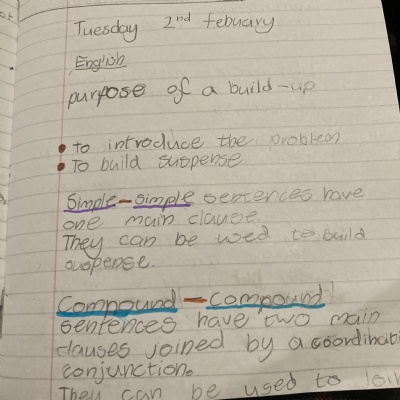 Tuesday 2nd febuary
English
purpose of a build-up
• to introduce the problem
• To build suspense
Simple - simple sentences have
one main clause.
They can be used to build
suspense.
Compound - compound
sentences have two main
clauses joined by a coordinati
conjunction.
They can be used to join